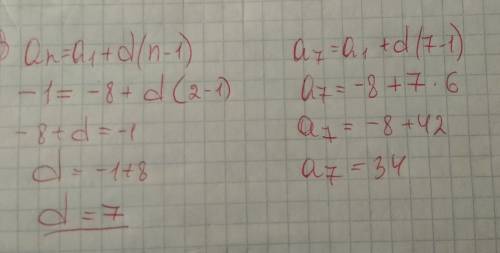 ) an=a1+d(n-1)
-1= -8+d(2-1)
-8+d=-1
d= -1+8
d=7
a7=a1+d(7-1)
a7=-8+7·6
a7=-8+42
a7=34